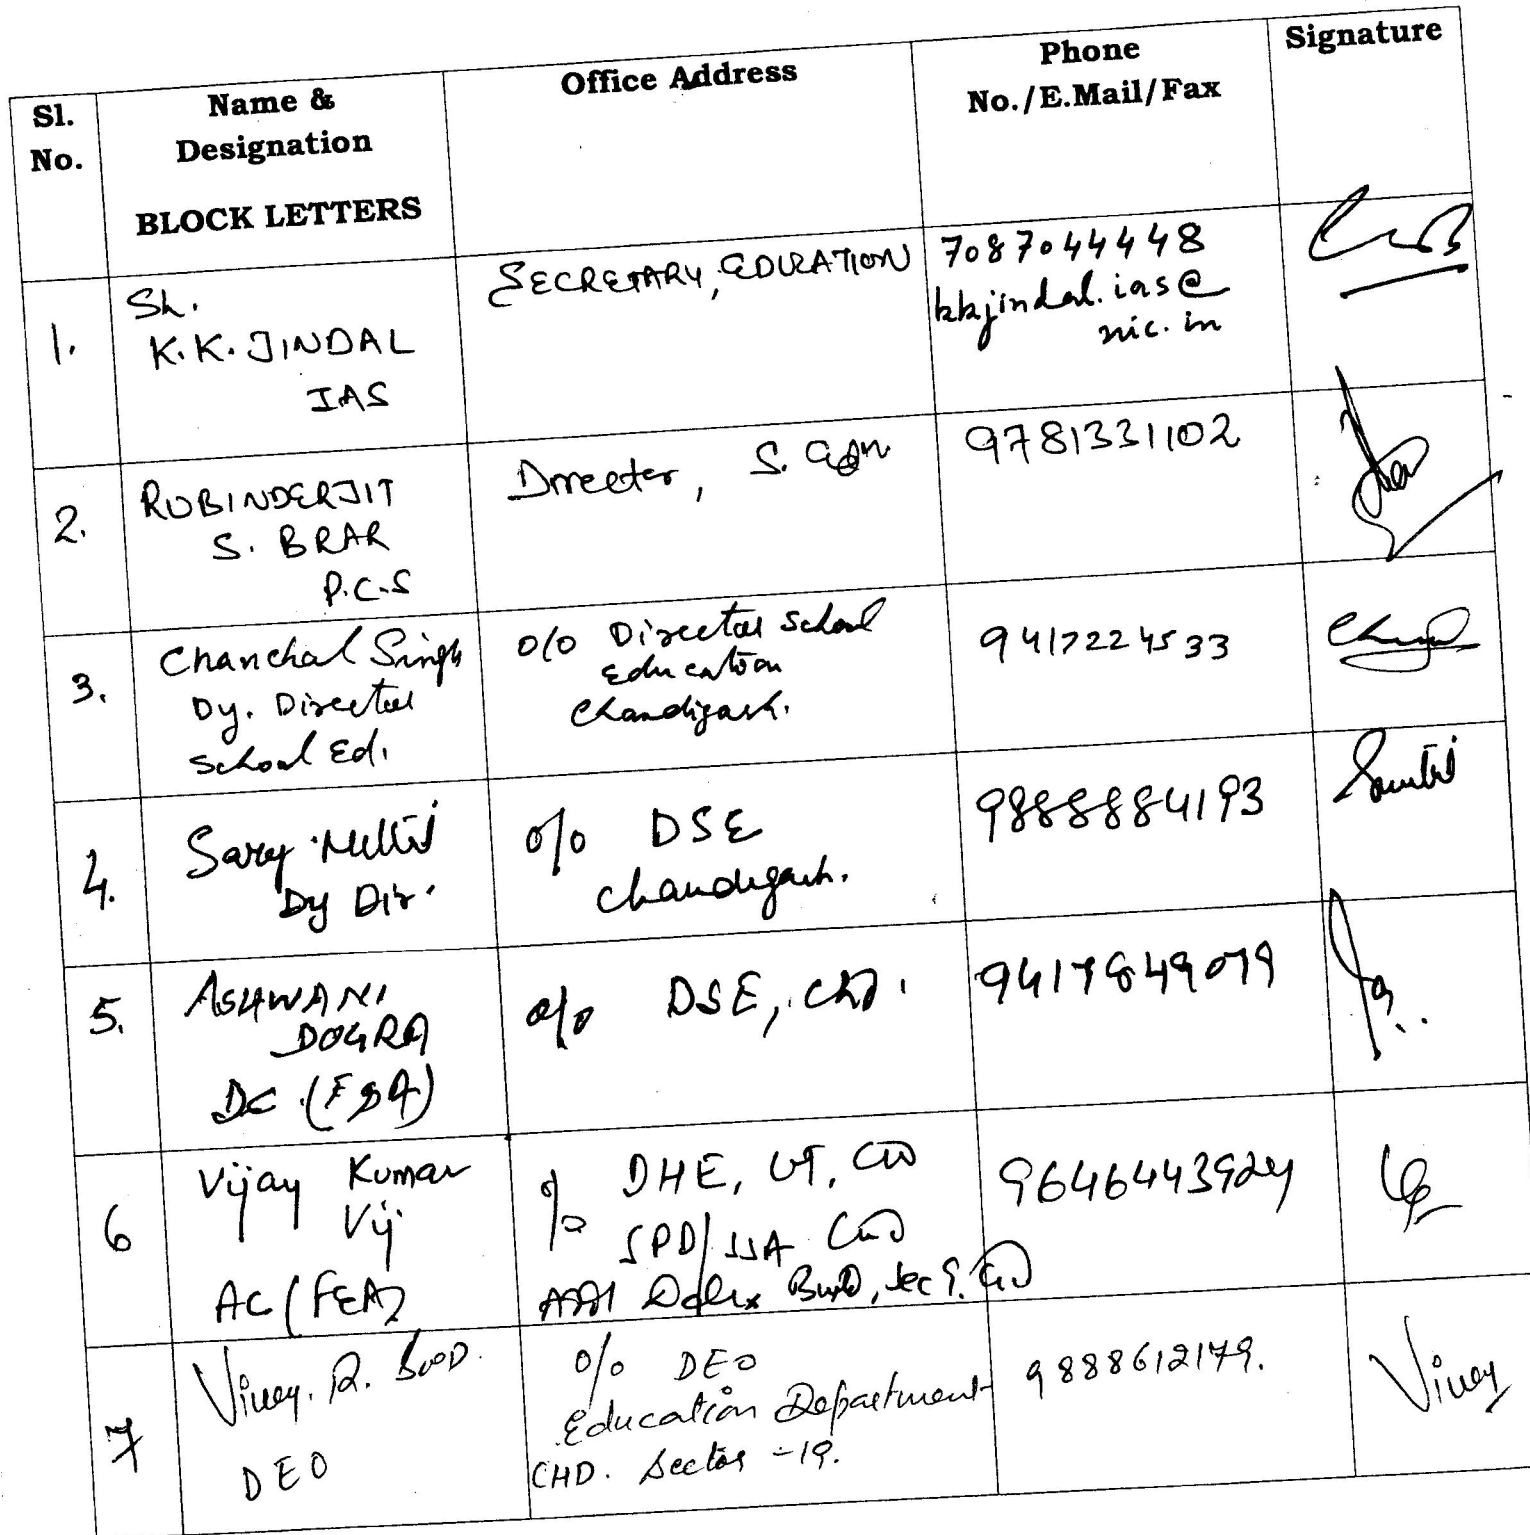 Sl.
No.
Name &
Designation
BLOCK LETTERS
Office Address
Phone
No./E.Mail/Fax
Signature
1.
Sh.
K.K. JINDAL
IAS
SECRETARY, EDUCATION
7087044448
kkjindal.ias@
nic.in
2.
RUBINDERJIT
S. BRAR
P.C.S
Director, S. Edn
9781331102
3.
Chanchal Singh
Dy. Director
School Ed.
O/O Director School
Education
Chandigarh.
9417224533
4.
Dy Dir.
O/o DSE
Chandigarh.
9888884193
5.
ASHWANI
DOGRA
DC (F&A)
O/o DSE, Chd.
9417849079
6
Vijay Kumar
Vij
AC (F&A)
O/o DHE, UT, CHD
SPD/SSA CHD
Sec 9. CHD
9646443924
7
Viney. R. Sood.
DEO
O/o DEO
Education Department
CHD. Sector -19.
9888612179.
Viney